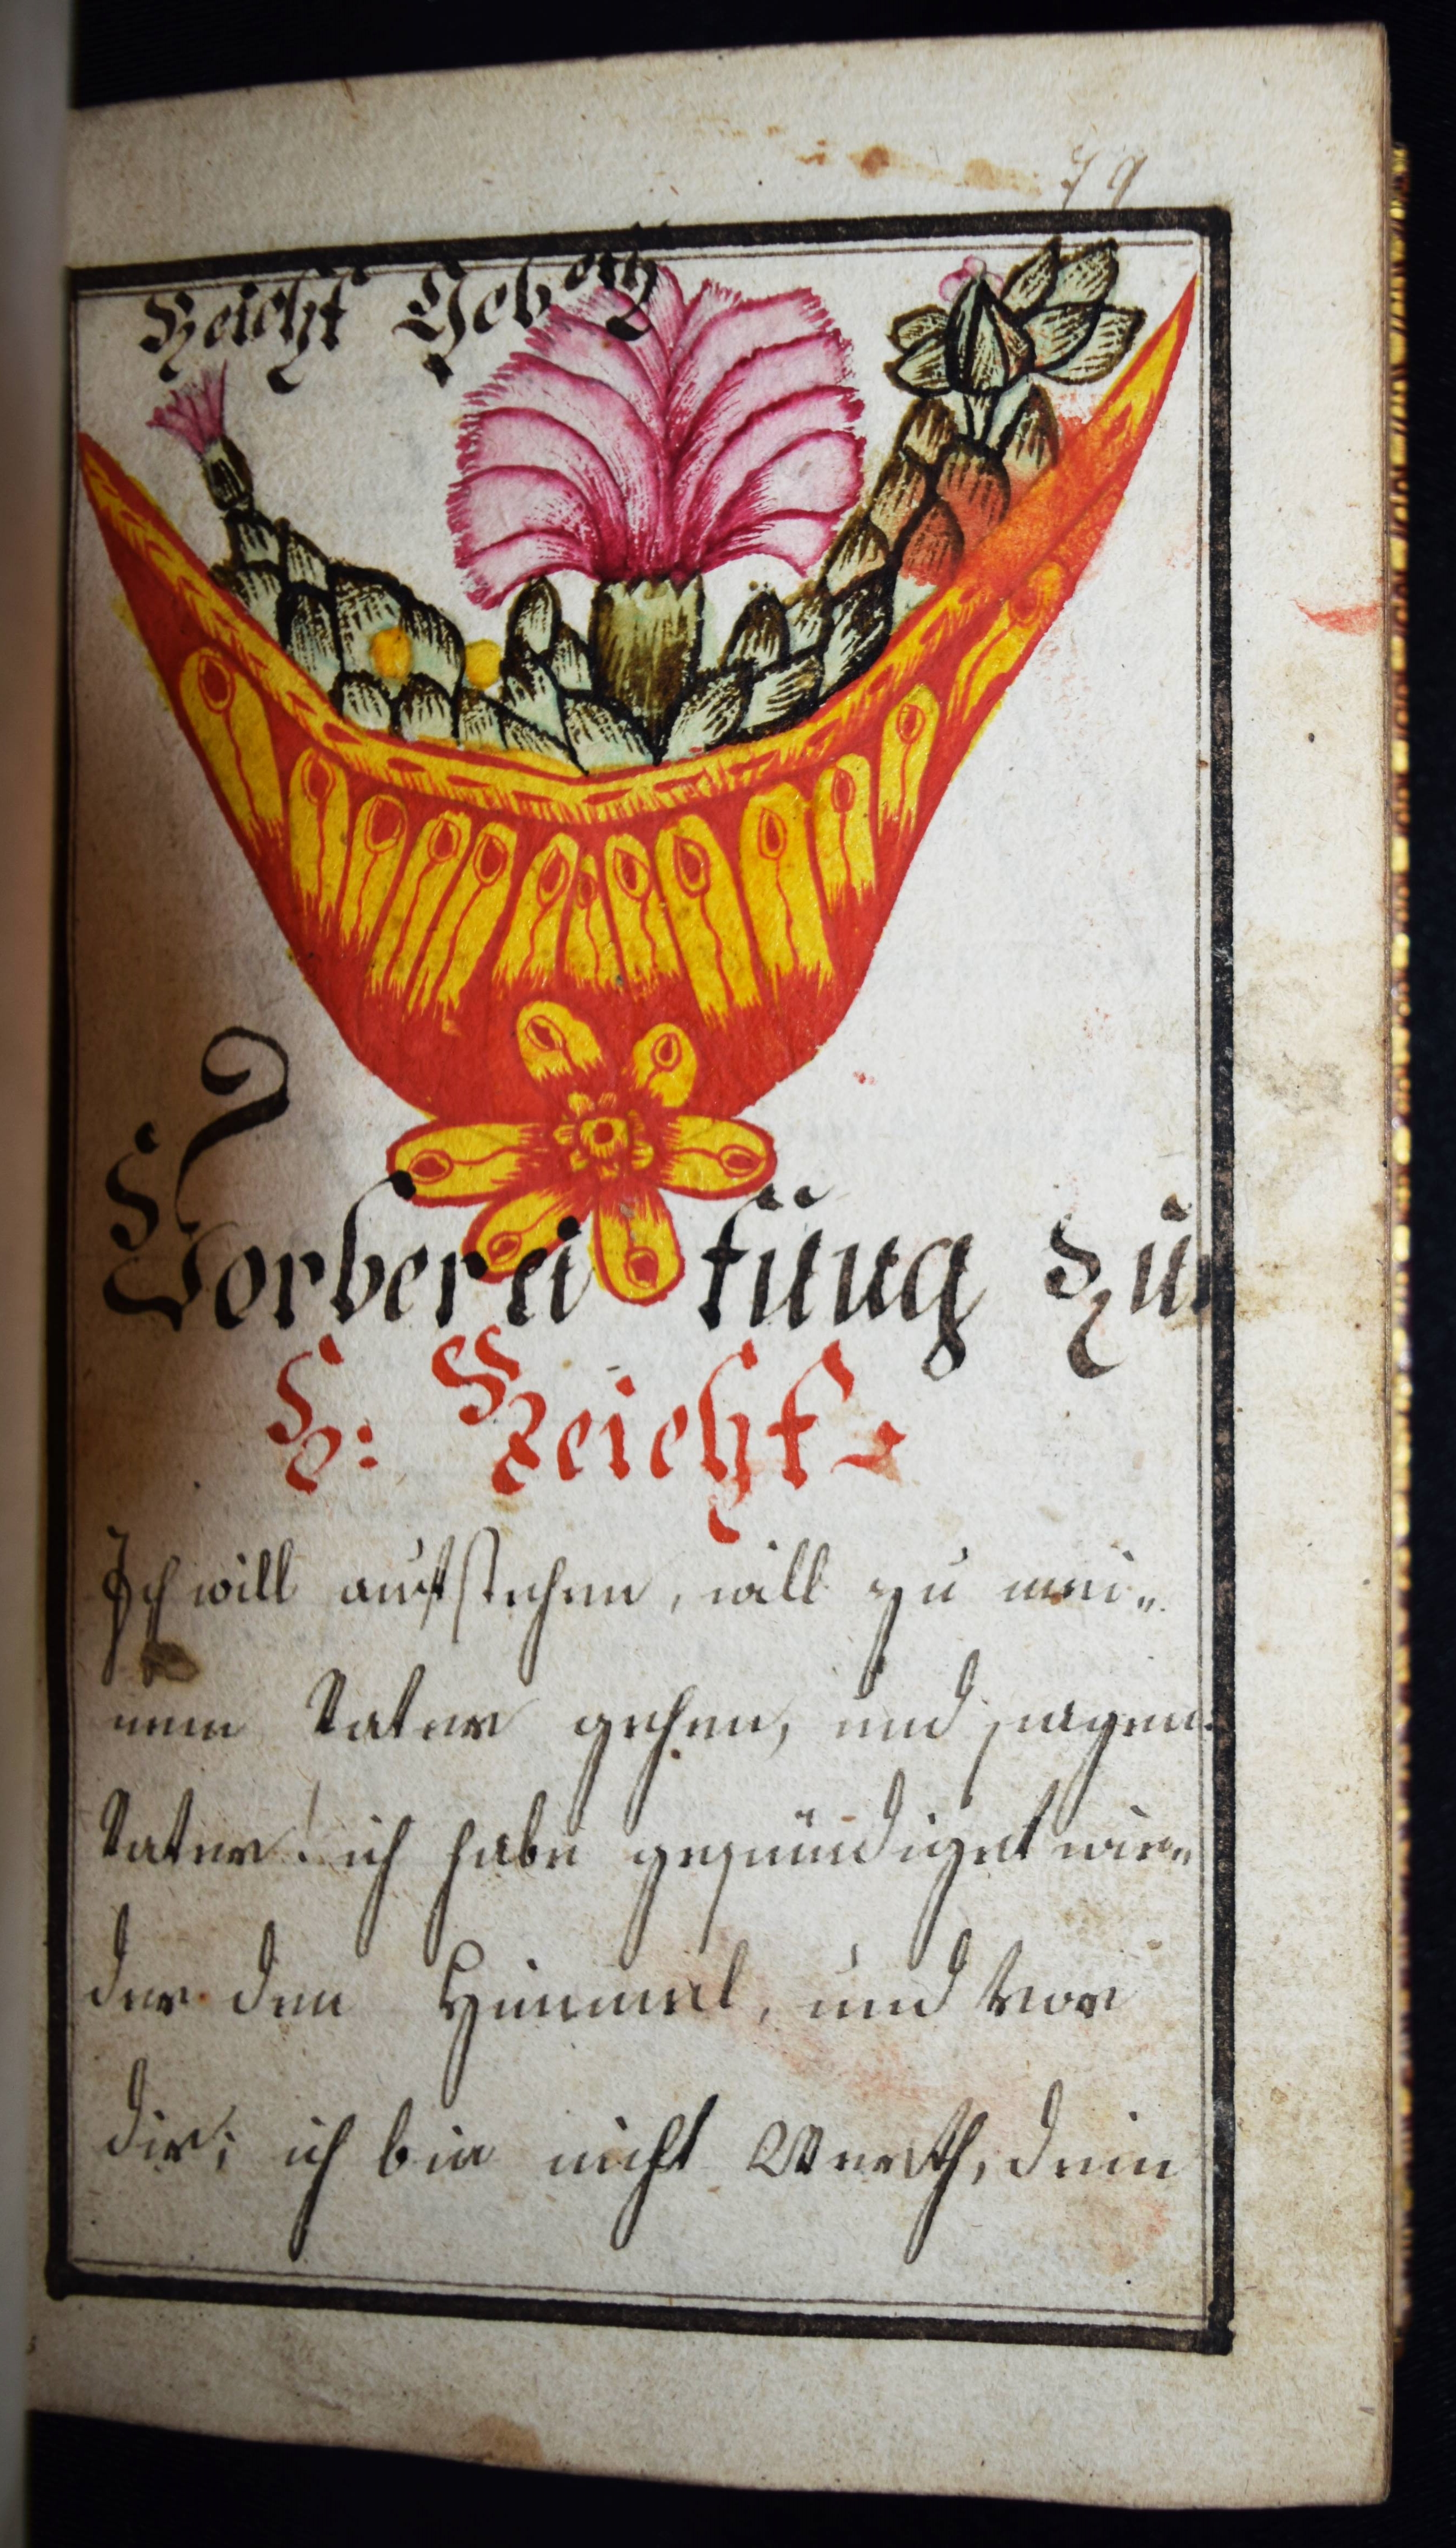 79
Beicht Gebett
Vorbereitung zur
H: Beicht
Ich will aufstehen, will zu mei„
nem Vater gehen, und sagen.
Vater! ich habe gesündiget wie„
der den Himmel, und vor
dir; ich bin nicht Werth, dein